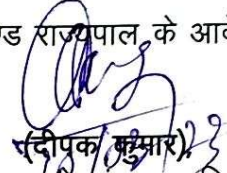 ड राज्यपाल के आदे
(दीपक कुमार),